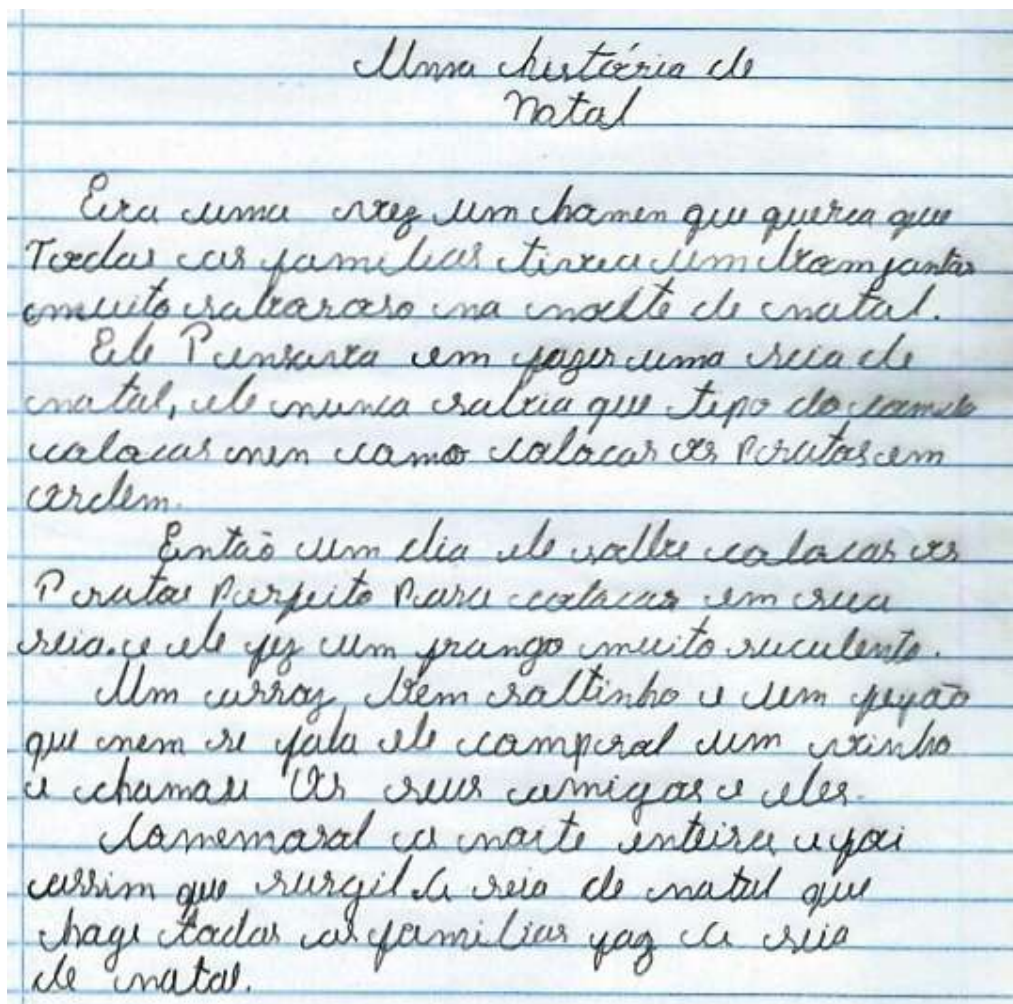 Uma história de
Natal
Era uma vez um homen que queria que
Todas as familias tivia um bom jantar
muito saboroso na noite de natal.
Ele Pensava em fazer uma seia de
natal, ele nunca sabia que tipo do
colocar nen como colocar os Pratos em
ordem.
Então um dia ele colocar os
Pratos Perfeito Para colocar em sua
seia. e ele fez um frango muito suculento.
Um arroz bem soltinho e um feyão
que nem se fala ele comprol um vinho
e chamou Os seus amigos e eles.
Comemoral a noite enteira e foi
assim que surgil a seia de natal que
hage todas as familias faz a seia
de natal.